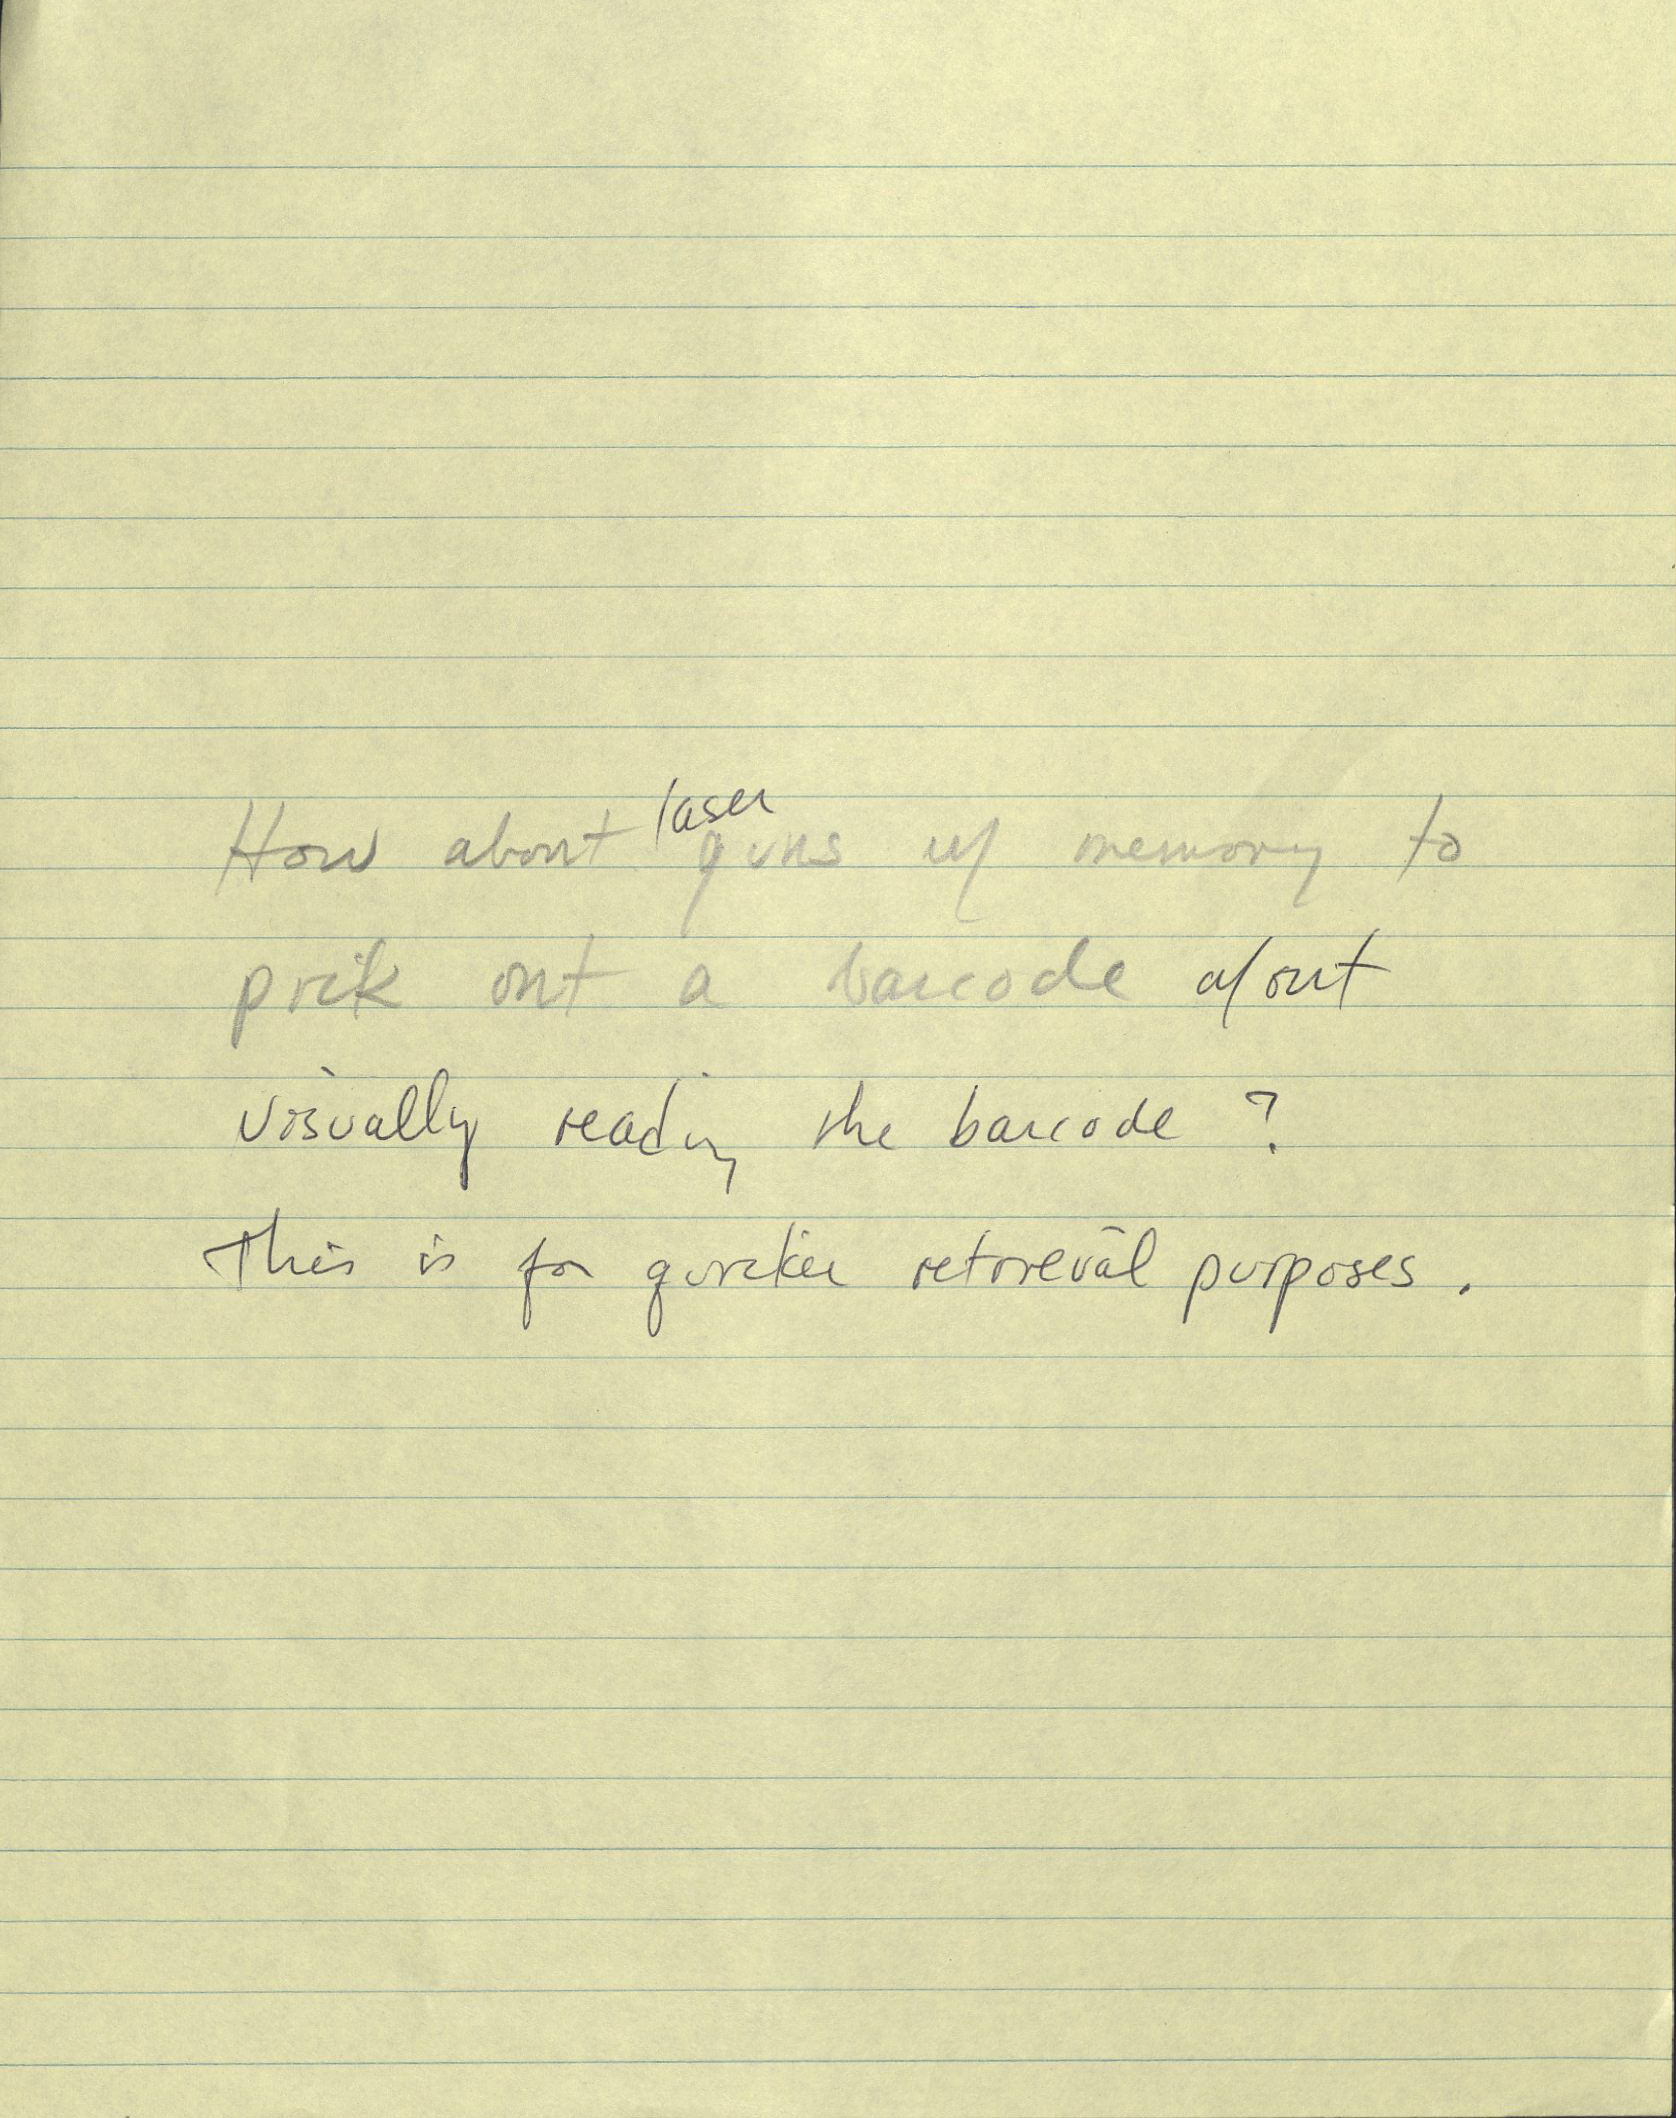 How about laser guns w/ memory to
prik out a barcode w/out
visually reading the barcode ?
This is for quicker retoreval purposes .